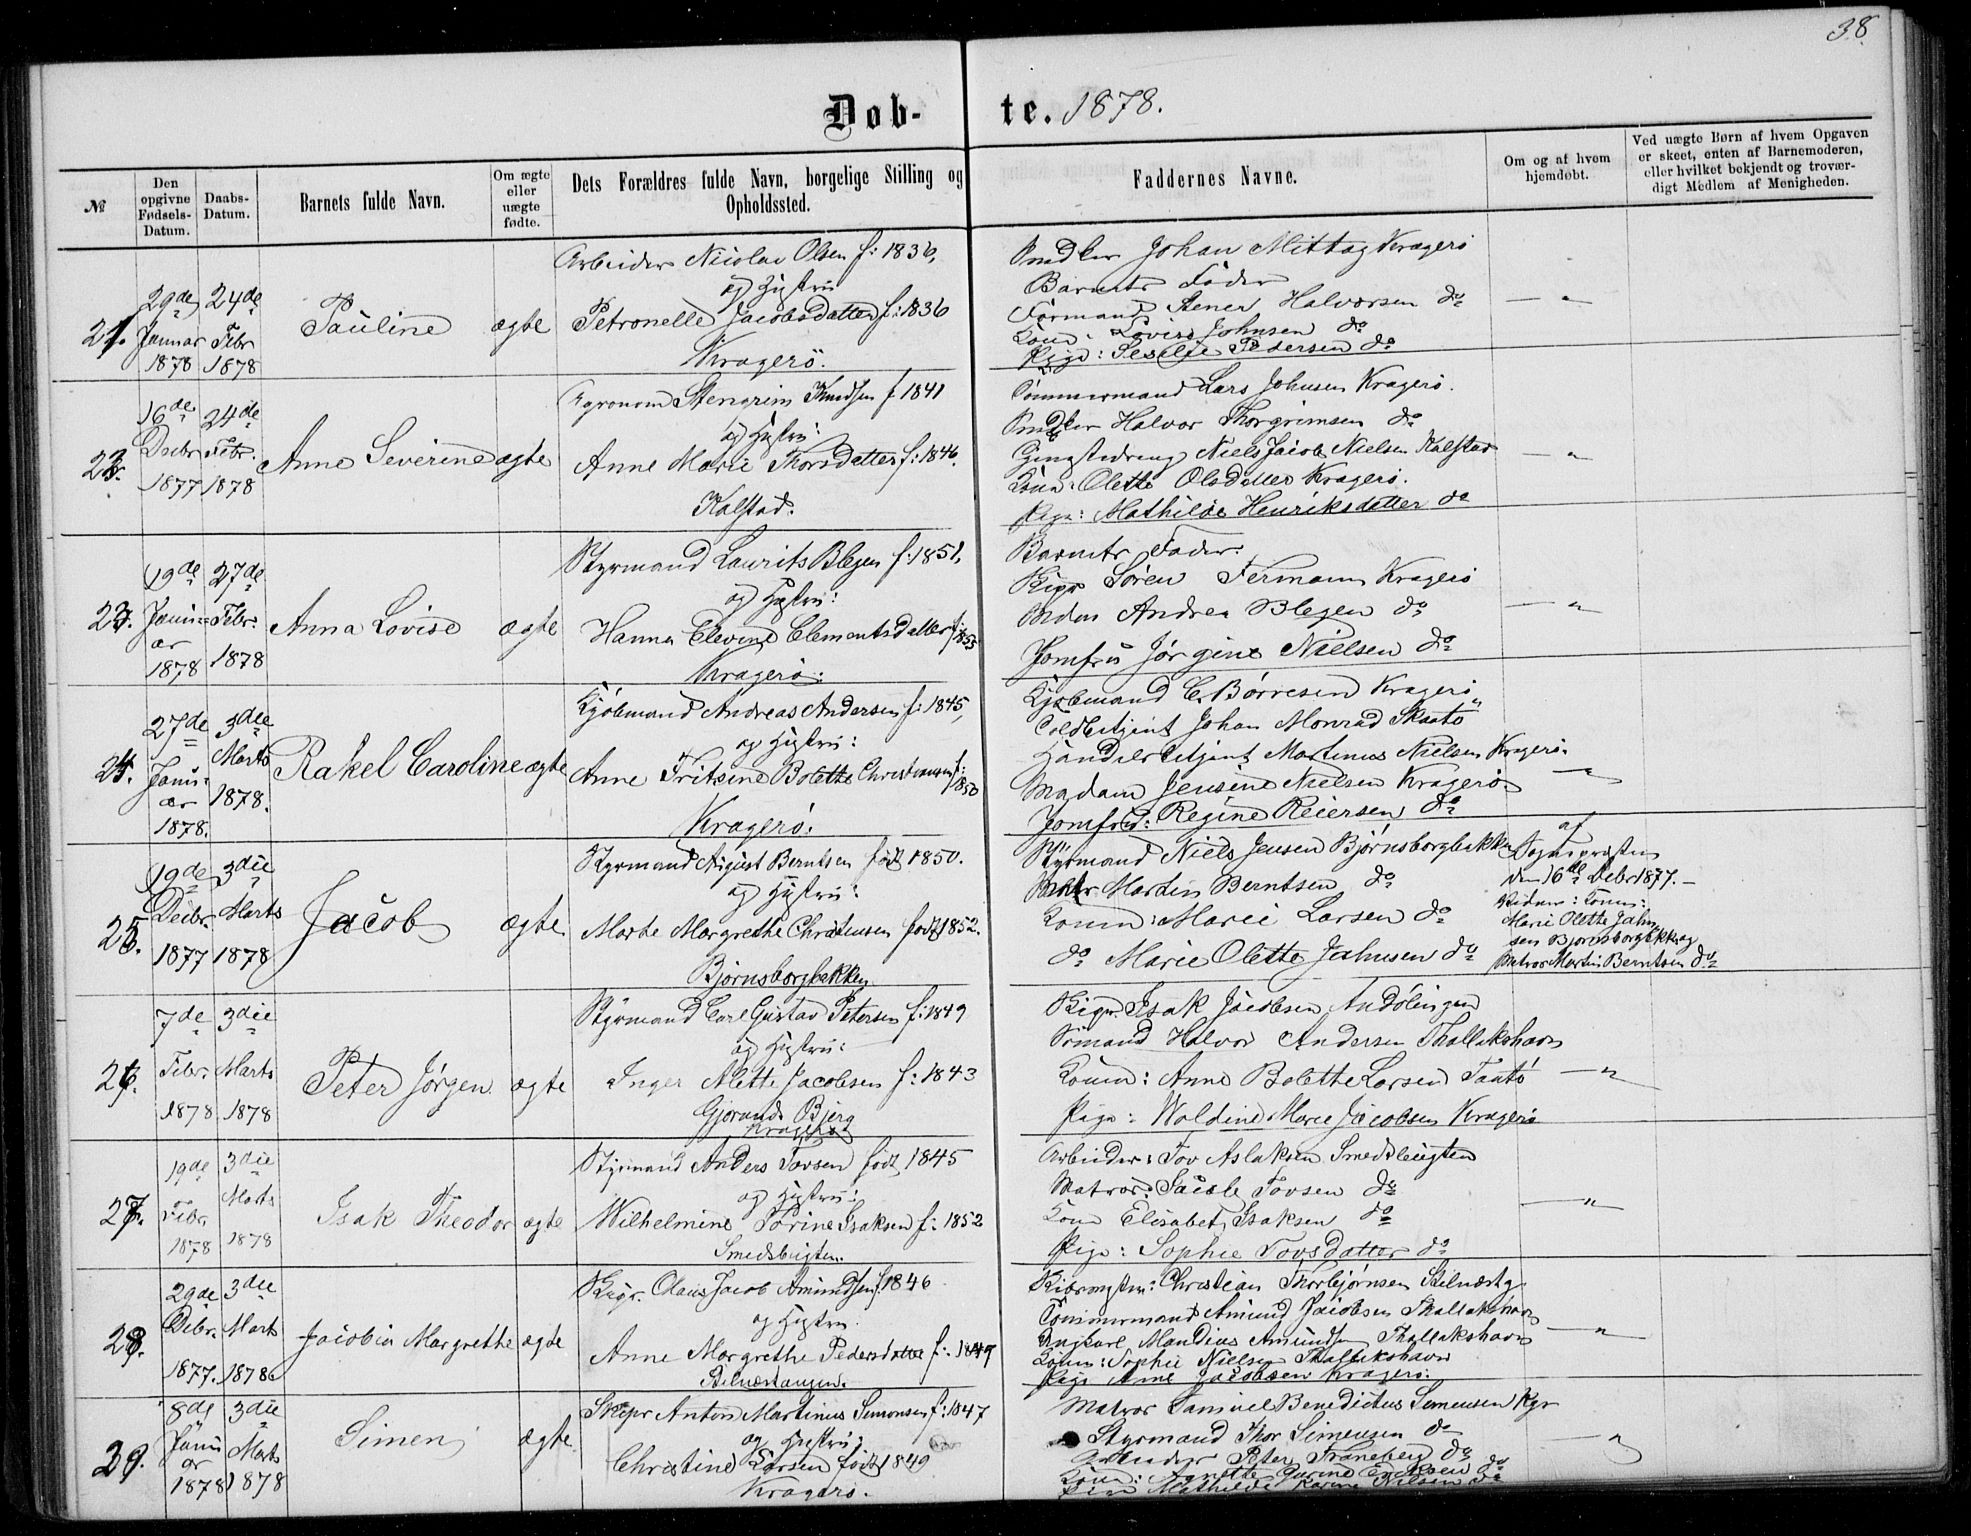 38
Døb-te. 1878.
№
Den opgivne Fødsels-Datum.
Daabs-Datum.
Barnets fulde Navn.
Om ægte eller uægte fødte.
Dets Forældres fulde Navn, borgelige Stilling og Opholdssted.
Faddernes Navne.
Om og af hvem hjemdøbt.
Ved uægte Børn af hvem Opgaven er skeet, enten af Barnemoderen, eller hvilket bekjendt og troværdigt Medlem af Menigheden.
21.
29de Januar 1878
24de Febr 1878
Pauline
ægte
Arbeider Nicolai Olsen f: 1836,
og Hustru
Petronelle Jacobsdatter f: 1836
Kragerö.
Johan Mittag Kragerö
Barnets Fader
Formand Stener Halvorsen do
Kone: Lovise Johnsen do
Pige: Pedersen do
— " —
22.
16de Decbr 1877
24de Febr. 1878
Anne Severine
ægte
Agronom Stengrim Knudsen f 1841
og Hustru:
Anne Marie Thorsdatter f: 1846.
Kalstad.
Tömmermand Lars Johnsen Kragerö.
Halvor Thorgrimsen do
Niels Jacob Nielsen Kalstad
Kone: Olette Olsdatter Kragerö.
Pige: Mathilde Henriksdatter do
— " —
23.
19de Januar 1878
27de Febr. 1878
Anna Lovise
ægte
Styrmand Laurits Blegen f: 1851.
og Hustru:
Hanna Elevine Clementsdatter f: 1855
Kragerö.
Barnets Fader.
Søren Fermann Kragerö
Mdm Andrea Blegen do
Jomfru Jørgine Nielsen do
— " —
24.
27de Januar 1878.
3die Marts 1878.
Rakel Caroline
ægte
Kjöbmand Andreas Andersen f: 1845,
og Hustru:
Anne Fritsine Bolette Christensen f: 1850
Kragerö.
Kjöbmand C. Börresen Kragerö
Toldbetjent Johan Monrad Skaatö
Handelsbetjent Martinus Nielsen Kragerö.
Madam Jensine Nielsen Kragerö
Jomfru: Regine Reiersen do
— " —
25.
19de Decbr. 1877
3die Marts 1878
Jacob
ægte
Styrmand August Berntsen født 1850.
og Hustru:
Marte Margrethe Christensen født 1852.
Bjørnsborgbakken
Styrmand Niels Jensen Bjørnsborgbakken
Matr Martin Berntsen do
Kone: Marie Larsen do
do Marie Olette Jahnsen do
af
Sognepræsten
den 16de Debr 1877. —
Vidner: Kone:
Marie Olette Jahnsen Bjørnsborgbkk og
Matros Martin Berntsen do
26.
7de Febr. 1878
3die Marts 1878
Peter Jørgen
ægte
Styrmand Carl Gustav Petersen f: 1849
og Hustru:
Inger Alette Jacobsen f: 1843
Bjerg
Kragerö
Isak Jacobsen
Sömand Halvor Andersen Thallakshavn
Kone: Anne Bolette Larsen Taatö
Pige: Woldine Marie Jacobsen Kragerö
— " —
27.
19de Febr. 1878
3die Marts 1878
Isak Theodor
ægte
Styrmand Anders Tovsen født 1845
og Hustru:
Wilhelmine Torine Isaksen f: 1852
Smedsbugten.
Arbeider: Tov Aslaksen Smedsbugten
Matros: Jacob Tovsen do
Kone Elisabet Isaksen do
Pige: Sophie Tovsdatter do
— " —
28.
29de Debr. 1877.
3die Marts 1878
Jacobia Margrethe
ægte
Olaus Jacob Amundsen f 1846
og Hustru
Anne Margrethe Pedersdatter f: 1849
Stilnæstangen.
Christian Thorbjørnsen
Tömmermand Amund Jacobsen Thallakshavn
Ungkarl Mandius Amundsen Thallakshavn
Kone: Sophie Nielsen Thallakshavn
Pige Anne Jacobsen Kragerö.
— " —
29.
8de Januar 1878
3die Marts 1878
Simen
ægte
Skipr Anton Martinus Simonsen f: 1847
og Hustru:
Christine Larsen født 1849
Kragerö.
Matros Samuel Benedictus Simensen Kgr
Styrmand Thor Simensen do
Arbeider Peter Franeberg do
Kone: Agnette do
Pige Mathilde Karine Nilsen do
— " —